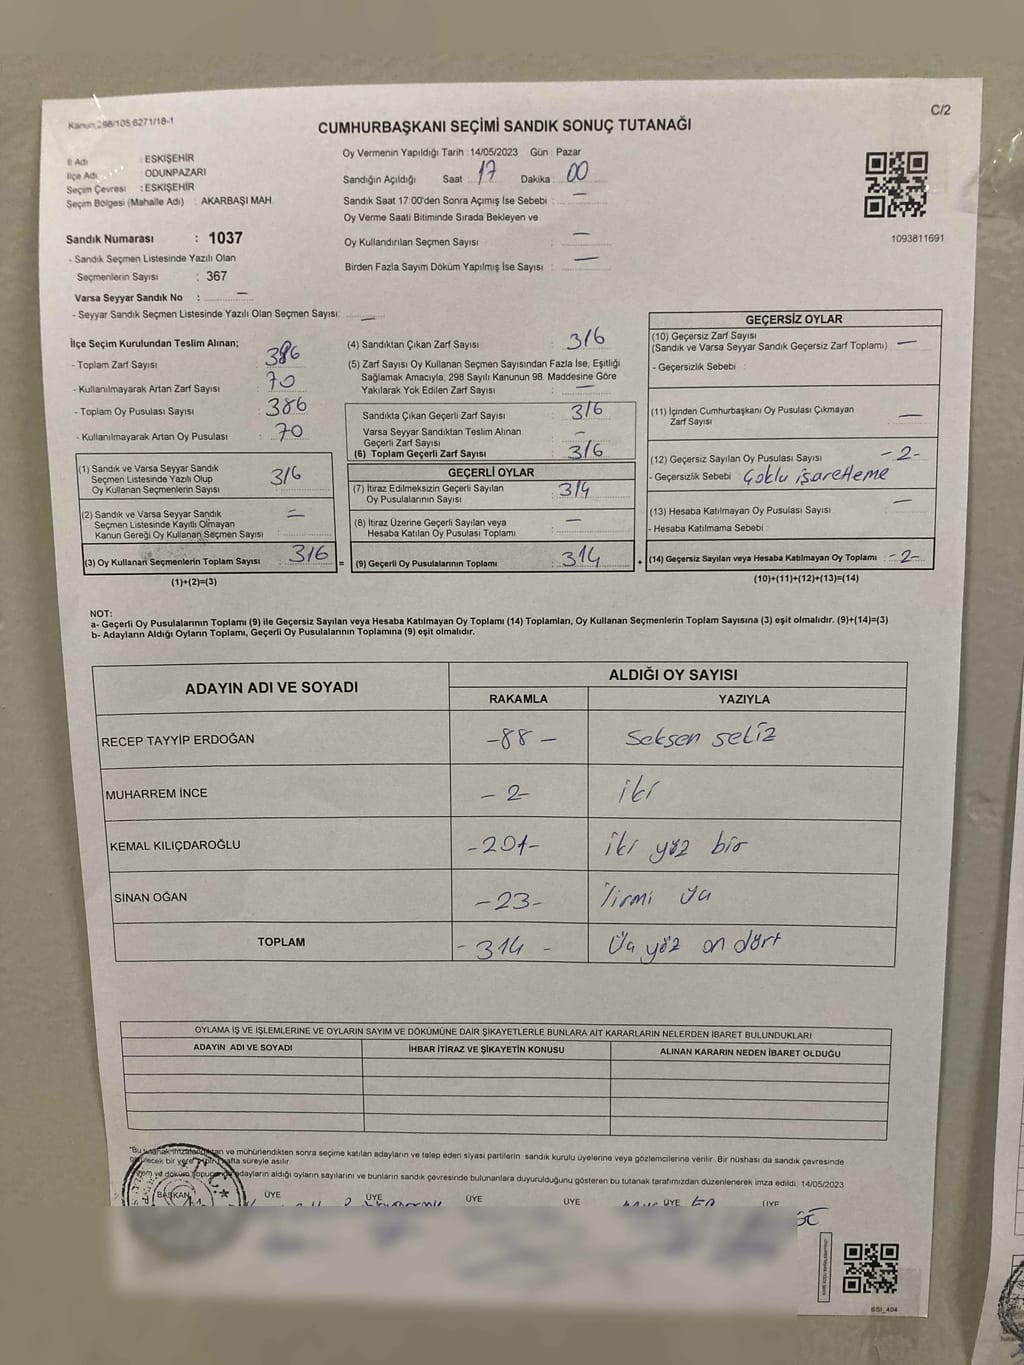 Kanun:298/105,6271/18-1
C/2
CUMHURBAŞKANI SEÇİMİ SANDIK SONUÇ TUTANAĞI
İl Adı : ESKİŞEHİR
İlçe Adı : ODUNPAZARI
Seçim Çevresi : ESKİŞEHİR
Seçim Bölgesi (Mahalle Adı) : AKARBAŞI MAH.
Sandık Numarası : 1037
- Sandık Seçmen Listesinde Yazılı Olan
Seçmenlerin Sayısı : 367
Varsa Seyyar Sandık No : —
- Seyyar Sandık Seçmen Listesinde Yazılı Olan Seçmen Sayısı: —
Oy Vermenin Yapıldığı Tarih : 14/05/2023 Gün : Pazar
Sandığın Açıldığı Saat : 17 Dakika : 00
Sandık Saat 17.00'den Sonra Açımış İse Sebebi : —
Oy Verme Saati Bitiminde Sırada Bekleyen ve
Oy Kullandırılan Seçmen Sayısı : —
Birden Fazla Sayım Döküm Yapılmış İse Sayısı : —
1093811691
İlçe Seçim Kurulundan Teslim Alınan;
- Toplam Zarf Sayısı : 386
- Kullanılmayarak Artan Zarf Sayısı : 70
- Toplam Oy Pusulası Sayısı : 386
- Kullanılmayarak Artan Oy Pusulası : 70
(1) Sandık ve Varsa Seyyar Sandık
Seçmen Listesinde Yazılı Olup
Oy Kullanan Seçmenlerin Sayısı : 316
(2) Sandık ve Varsa Seyyar Sandık
Seçmen Listesinde Kayıtlı Olmayan
Kanun Gereği Oy Kullanan Seçmen Sayısı : —
(3) Oy Kullanan Seçmenlerin Toplam Sayısı : 316
(1)+(2)=(3)
(4) Sandıktan Çıkan Zarf Sayısı : 316
(5) Zarf Sayısı Oy Kullanan Seçmen Sayısından Fazla İse, Eşitliği
Sağlamak Amacıyla; 298 Sayılı Kanunun 98. Maddesine Göre
Yakılarak Yok Edilen Zarf Sayısı : —
Sandıkta Çıkan Geçerli Zarf Sayısı : 316
Varsa Seyyar Sandıktan Teslim Alınan
Geçerli Zarf Sayısı : —
(6) Toplam Geçerli Zarf Sayısı : 316
GEÇERLİ OYLAR
(7) İtiraz Edilmeksizin Geçerli Sayılan
Oy Pusulalarının Sayısı : 314
(8) İtiraz Üzerine Geçerli Sayılan veya
Hesaba Katılan Oy Pusulası Toplamı : —
= (9) Geçerli Oy Pusulalarının Toplamı : 314
GEÇERSİZ OYLAR
(10) Geçersiz Zarf Sayısı : —
(Sandık ve Varsa Seyyar Sandık Geçersiz Zarf Toplamı)
- Geçersizlik Sebebi :
(11) İçinden Cumhurbaşkanı Oy Pusulası Çıkmayan
Zarf Sayısı : —
(12) Geçersiz Sayılan Oy Pusulası Sayısı : -2-
- Geçersizlik Sebebi : Çoklu işaretleme
(13) Hesaba Katılmayan Oy Pusulası Sayısı : —
- Hesaba Katılmama Sebebi :
+ (14) Geçersiz Sayılan veya Hesaba Katılmayan Oy Toplamı : -2-
(10)+(11)+(12)+(13)=(14)
NOT:
a- Geçerli Oy Pusulalarının Toplamı (9) ile Geçersiz Sayılan veya Hesaba Katılmayan Oy Toplamı (14) Toplamları, Oy Kullanan Seçmenlerin Toplam Sayısına (3) eşit olmalıdır. (9)+(14)=(3)
b- Adayların Aldığı Oyların Toplamı, Geçerli Oy Pusulalarının Toplamına (9) eşit olmalıdır.
ADAYIN ADI VE SOYADI ALDIĞI OY SAYISI
RAKAMLA YAZIYLA
RECEP TAYYİP ERDOĞAN -88- Seksen sekiz
MUHARREM İNCE -2- iki
KEMAL KILIÇDAROĞLU -201- iki yüz bir
SİNAN OĞAN -23- Yirmi üç
TOPLAM -314- Üç yüz on dört
OYLAMA İŞ VE İŞLEMLERİNE VE OYLARIN SAYIM VE DÖKÜMÜNE DAİR ŞİKAYETLERLE BUNLARA AİT KARARLARIN NELERDEN İBARET BULUNDUKLARI
ADAYIN ADI VE SOYADI İHBAR İTİRAZ VE ŞİKAYETİN KONUSU ALINAN KARARIN NEDEN İBARET OLDUĞU
ve mühürlendikten sonra seçime katılan adayların ve talep eden siyasi partilerin sandık kurulu üyelerine veya gözlemcilerine verilir. Bir nüshası da sandık çevresinde
bir yere hafta süreyle asılır.
adayların aldığı oyların sayılarını ve bunların sandık çevresinde bulunanlara duyurulduğunu gösteren bu tutanak tarafımızdan düzenlenerek imza edildi. 14/05/2023
BAŞKAN ÜYE ÜYE ÜYE ÜYE ÜYE ÜYE
SSI_404